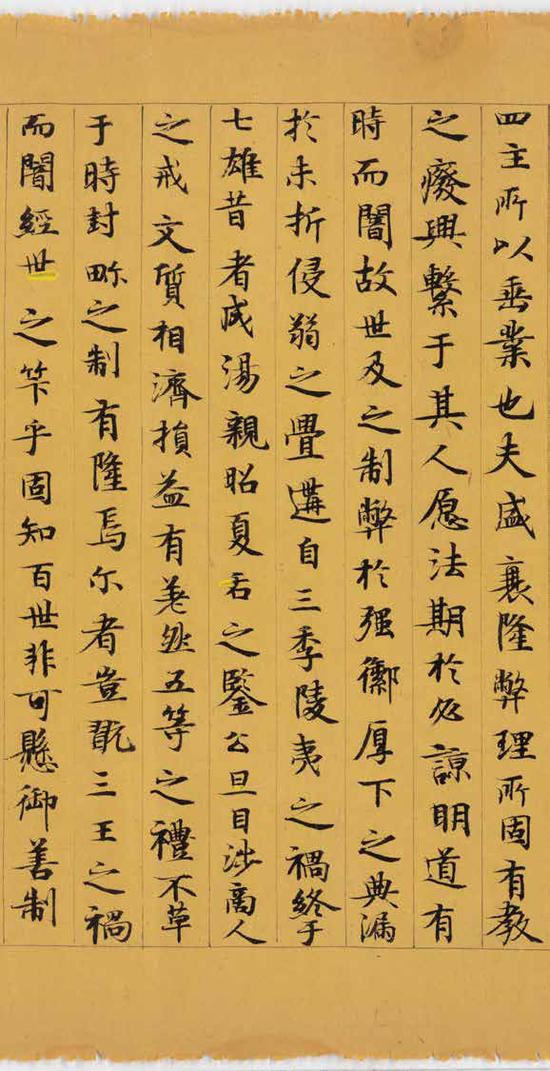 四主所以垂業也夫盛襄隆弊理所固有教
之癈興繫于其人愿法期於必諒明道有
時而闇故世及之制弊於强禦厚下之典漏
於未折侵弱之疊遘自三季陵夷之禍終于
七雄昔者成湯親昭夏后之鑒公旦目涉商人
之戒文質相濟損益有美然五等之禮不革
于時封畛之制有隆焉尔者豈翫三王之禍
而闇經世之筭乎固知百世非可懸御善制